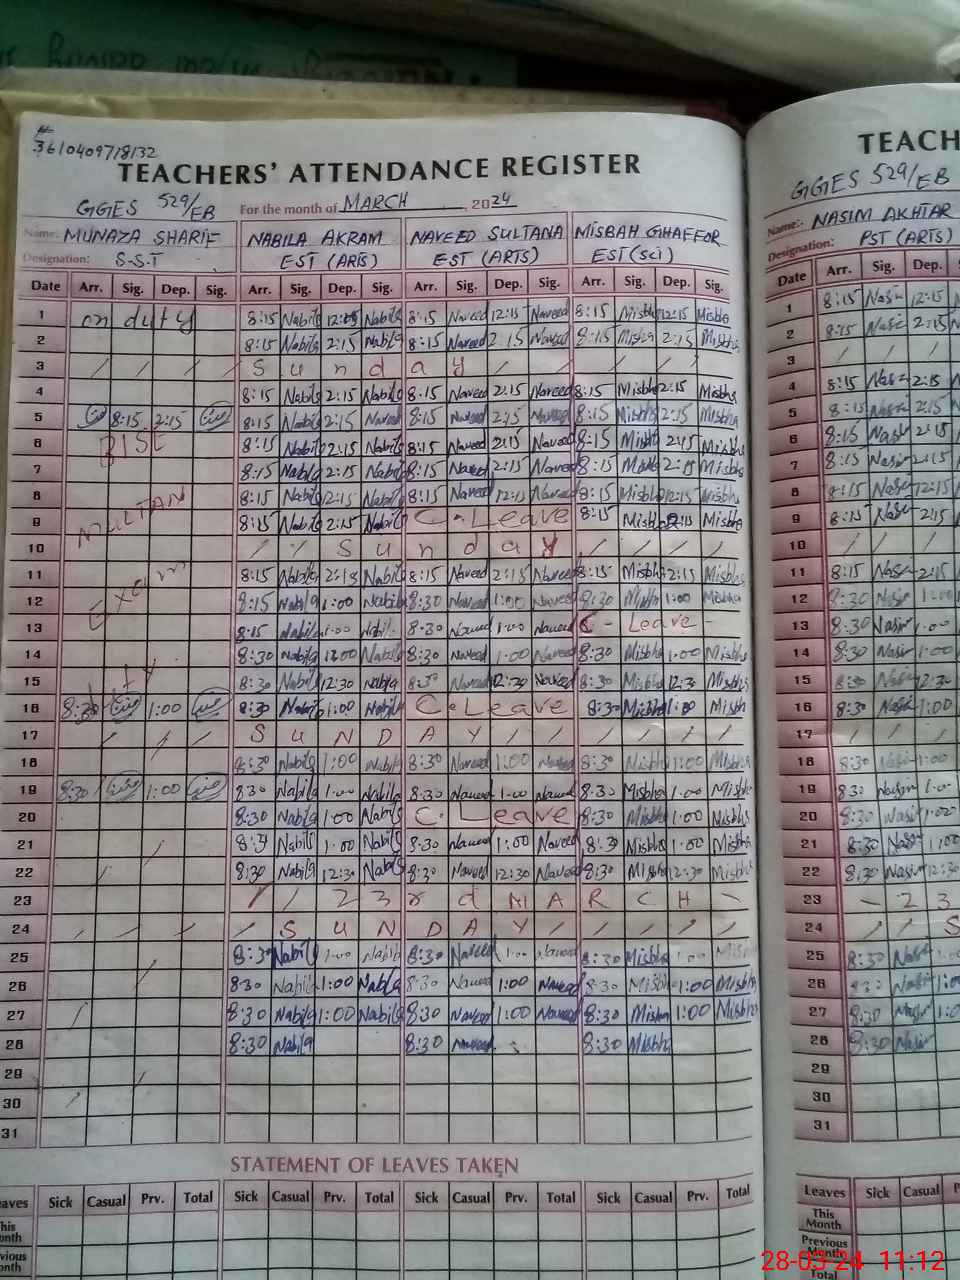 #
3610409718132
TEACHERS' ATTENDANCE REGISTER
GGES 529/EB For the month of MARCH, 2024
Name: MUNAZA SHARIF NABILA AKRAM NAVEED SULTANA MISBAH GHAFFOR
Designation: S.S.T EST (ARTS) EST (ARTS) EST (Sci)
Date Arr. Sig. Dep. Sig. Arr. Sig. Dep. Sig. Arr. Sig. Dep. Sig. Arr. Sig. Dep. Sig.
1 on duty 8:15 Nabila 12:15 Nabila 8:15 Naveed 12:15 Naveed 8:15 Misbha 12:15 Misbha
2 8:15 Nabila 2:15 Nabila 8:15 Naveed 2:15 Naveed 8:15 Misbha 2:15 Misbha
3 / / / / Sunday / / / / /
4 8:15 Nabila 2:15 Nabila 8:15 Naveed 2:15 Naveed 8:15 Misbha 2:15 Misbha
5 8:15 2:15 8:15 Nabila 2:15 8:15 Naveed 2:15 Naveed 8:15 Misbha 2:15 Misbha
6 BISE 8:15 Nabila 2:15 Nabila 8:15 Naveed 2:15 Naveed 8:15 Misbha 2:15 Misbha
7 8:15 Nabila 2:15 Nabila 8:15 Naveed 2:15 Naveed 8:15 Misbha 2:15 Misbha
8 MULTAN 8:15 Nabila 12:15 Nabila 8:15 Naveed 12:15 Naveed 8:15 Misbha 12:15 Misbha
9 8:15 Nabila 2:15 Nabila C.Leave 8:15 Misbha 2:15 Misbha
10 / / Sunday / / / /
11 Exam 8:15 Nabila 2:15 Nabila 8:15 Naveed 2:15 Naveed 8:15 Misbha 2:15 Misbha
12 8:15 Nabila 1:00 Nabila 8:30 Naveed 1:00 Naveed 8:30 Misbha 1:00 Misbha
13 8:15 Nabila 1:00 Nabila 8:30 Naveed 1:00 Naveed C - Leave -
14 8:30 Nabila 1:00 Nabila 8:30 Naveed 1:00 Naveed 8:30 Misbha 1:00 Misbha
15 duty 8:30 Nabila 12:30 Nabila 8:30 Naveed 12:30 Naveed 8:30 Misbha 12:30 Misbha
16 8:30 1:00 8:30 Nabila 1:00 Nabila C.Leave 8:30 Misbha 1:00 Misbha
17 / / / SUNDAY / / / / /
18 8:30 Nabila 1:00 Nabila 8:30 Naveed 1:00 Naveed 8:30 Misbha 1:00 Misbha
19 8:30 1:00 8:30 Nabila 1:00 Nabila 8:30 Naveed 1:00 Naveed 8:30 Misbha 1:00 Misbha
20 8:30 Nabila 1:00 Nabila C.Leave 8:30 Misbha 1:00 Misbha
21 8:30 Nabila 1:00 Nabila 8:30 Naveed 1:00 Naveed 8:30 Misbha 1:00 Misbha
22 8:30 Nabila 12:30 Nabila 8:30 Naveed 12:30 Naveed 8:30 Misbha 12:30 Misbha
23 / / 23rd MARCH -
24 / / / / SUNDAY / / / / /
25 8:30 Nabila 1:00 Nabila 8:30 Naveed 1:00 Naveed 8:30 Misbha 1:00 Misbha
26 8:30 Nabila 1:00 Nabila 8:30 Naveed 1:00 Naveed 8:30 Misbha 1:00 Misbha
27 8:30 Nabila 1:00 Nabila 8:30 Naveed 1:00 Naveed 8:30 Misbha 1:00 Misbha
28 8:30 Nabila 8:30 Naveed 8:30 Misbha
29
30
31
STATEMENT OF LEAVES TAKEN
Leaves Sick Casual Prv. Total Sick Casual Prv. Total Sick Casual Prv. Total Sick Casual Prv. Total
This Month
Previous Month
TEACH
GGES 529/EB
Name:- NASIM AKHTAR
Designation: PST (ARTS)
Date Arr. Sig. Dep.
1 8:15 Nasim 12:15
2 8:15 Nasim 2:15
3 / / /
4 8:15 Nasim 2:15
5 8:15 Nasim 2:15
6 8:15 Nasim 2:15
7 8:15 Nasim 2:15
8 8:15 Nasim 12:15
9 8:15 Nasim 2:15
10 / / /
11 8:15 Nasim 2:15
12 8:30 Nasim 1:00
13 8:30 Nasim 1:00
14 8:30 Nasim 1:00
15 8:30 Nasim 12:30
16 8:30 Nasim 1:00
17 / / /
18 8:30 Nasim 1:00
19 8:30 Nasim 1:00
20 8:30 Nasim 1:00
21 8:30 Nasim 1:00
22 8:30 Nasim 12:30
23 - 2 3
24 / / S
25 8:30 Nasim
26 8:30 Nasim 1:00
27 8:30 Nasim 1:0
28 8:30 Nasim
29
30
31
Leaves Sick Casual
This Month
Previous Month
Total
28-03-24 11:12